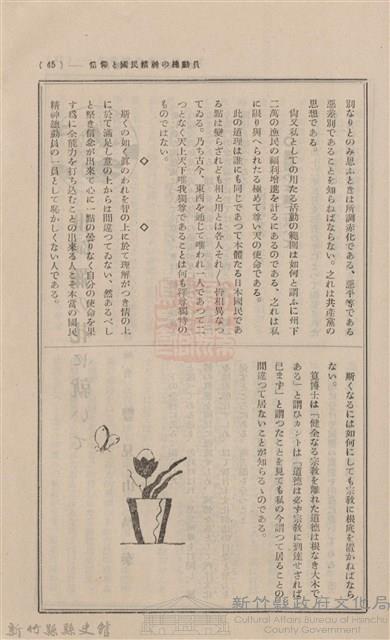 (45) ―― 信仰と國民精神の總動員
別なりとのみ思ふときは所謂赤化である、惡平等である
惡差別であることを知らねばならない。之れは共產黨の
思想である。
尙又私としての用たる活動の範圍は如何と謂ふに州下
二萬の漁民の福利增進を計るにあるのである、之れは私
に限り與へられたる極めて尊い天の使命である。
此の道理は誰にも同じであつて本體たる日本國民であ
る點は變らざれども相と用とは各人それ〲皆相異なつ
てゐる。乃ち古今、東西を通じて唯われ一人であつて二
つとなく天上天下唯我獨尊であることは何も釋尊獨特の
ものではない。
◇ ◇
斯くの如く眞のわれを智の上に於て理解がつき情の上
に於て滿足し意の上からは間違つてゐない、然あるべし
と堅き信念が出來て心に一點の曇りなく自分の使命を果
す爲に全能力を打ち込むことの出來る人こそ本當の國民
精神總動員の一員として恥かしくない人である。
斯くなるには如何にしても宗敎に根底を置かねばなら
ない。
筧博士は『健全なる宗敎を離れた道德は根なき大木で
ある』と謂ひカントは『道德は必ず宗敎に到達せざれば
已まず』と謂つたことを見ても私の今謂つて居ることの
間違つて居ないことが知らるゝのである。
新竹縣縣史館
新竹縣政府文化局
Cultural Affairs Bureau of Hsinchu
County Government